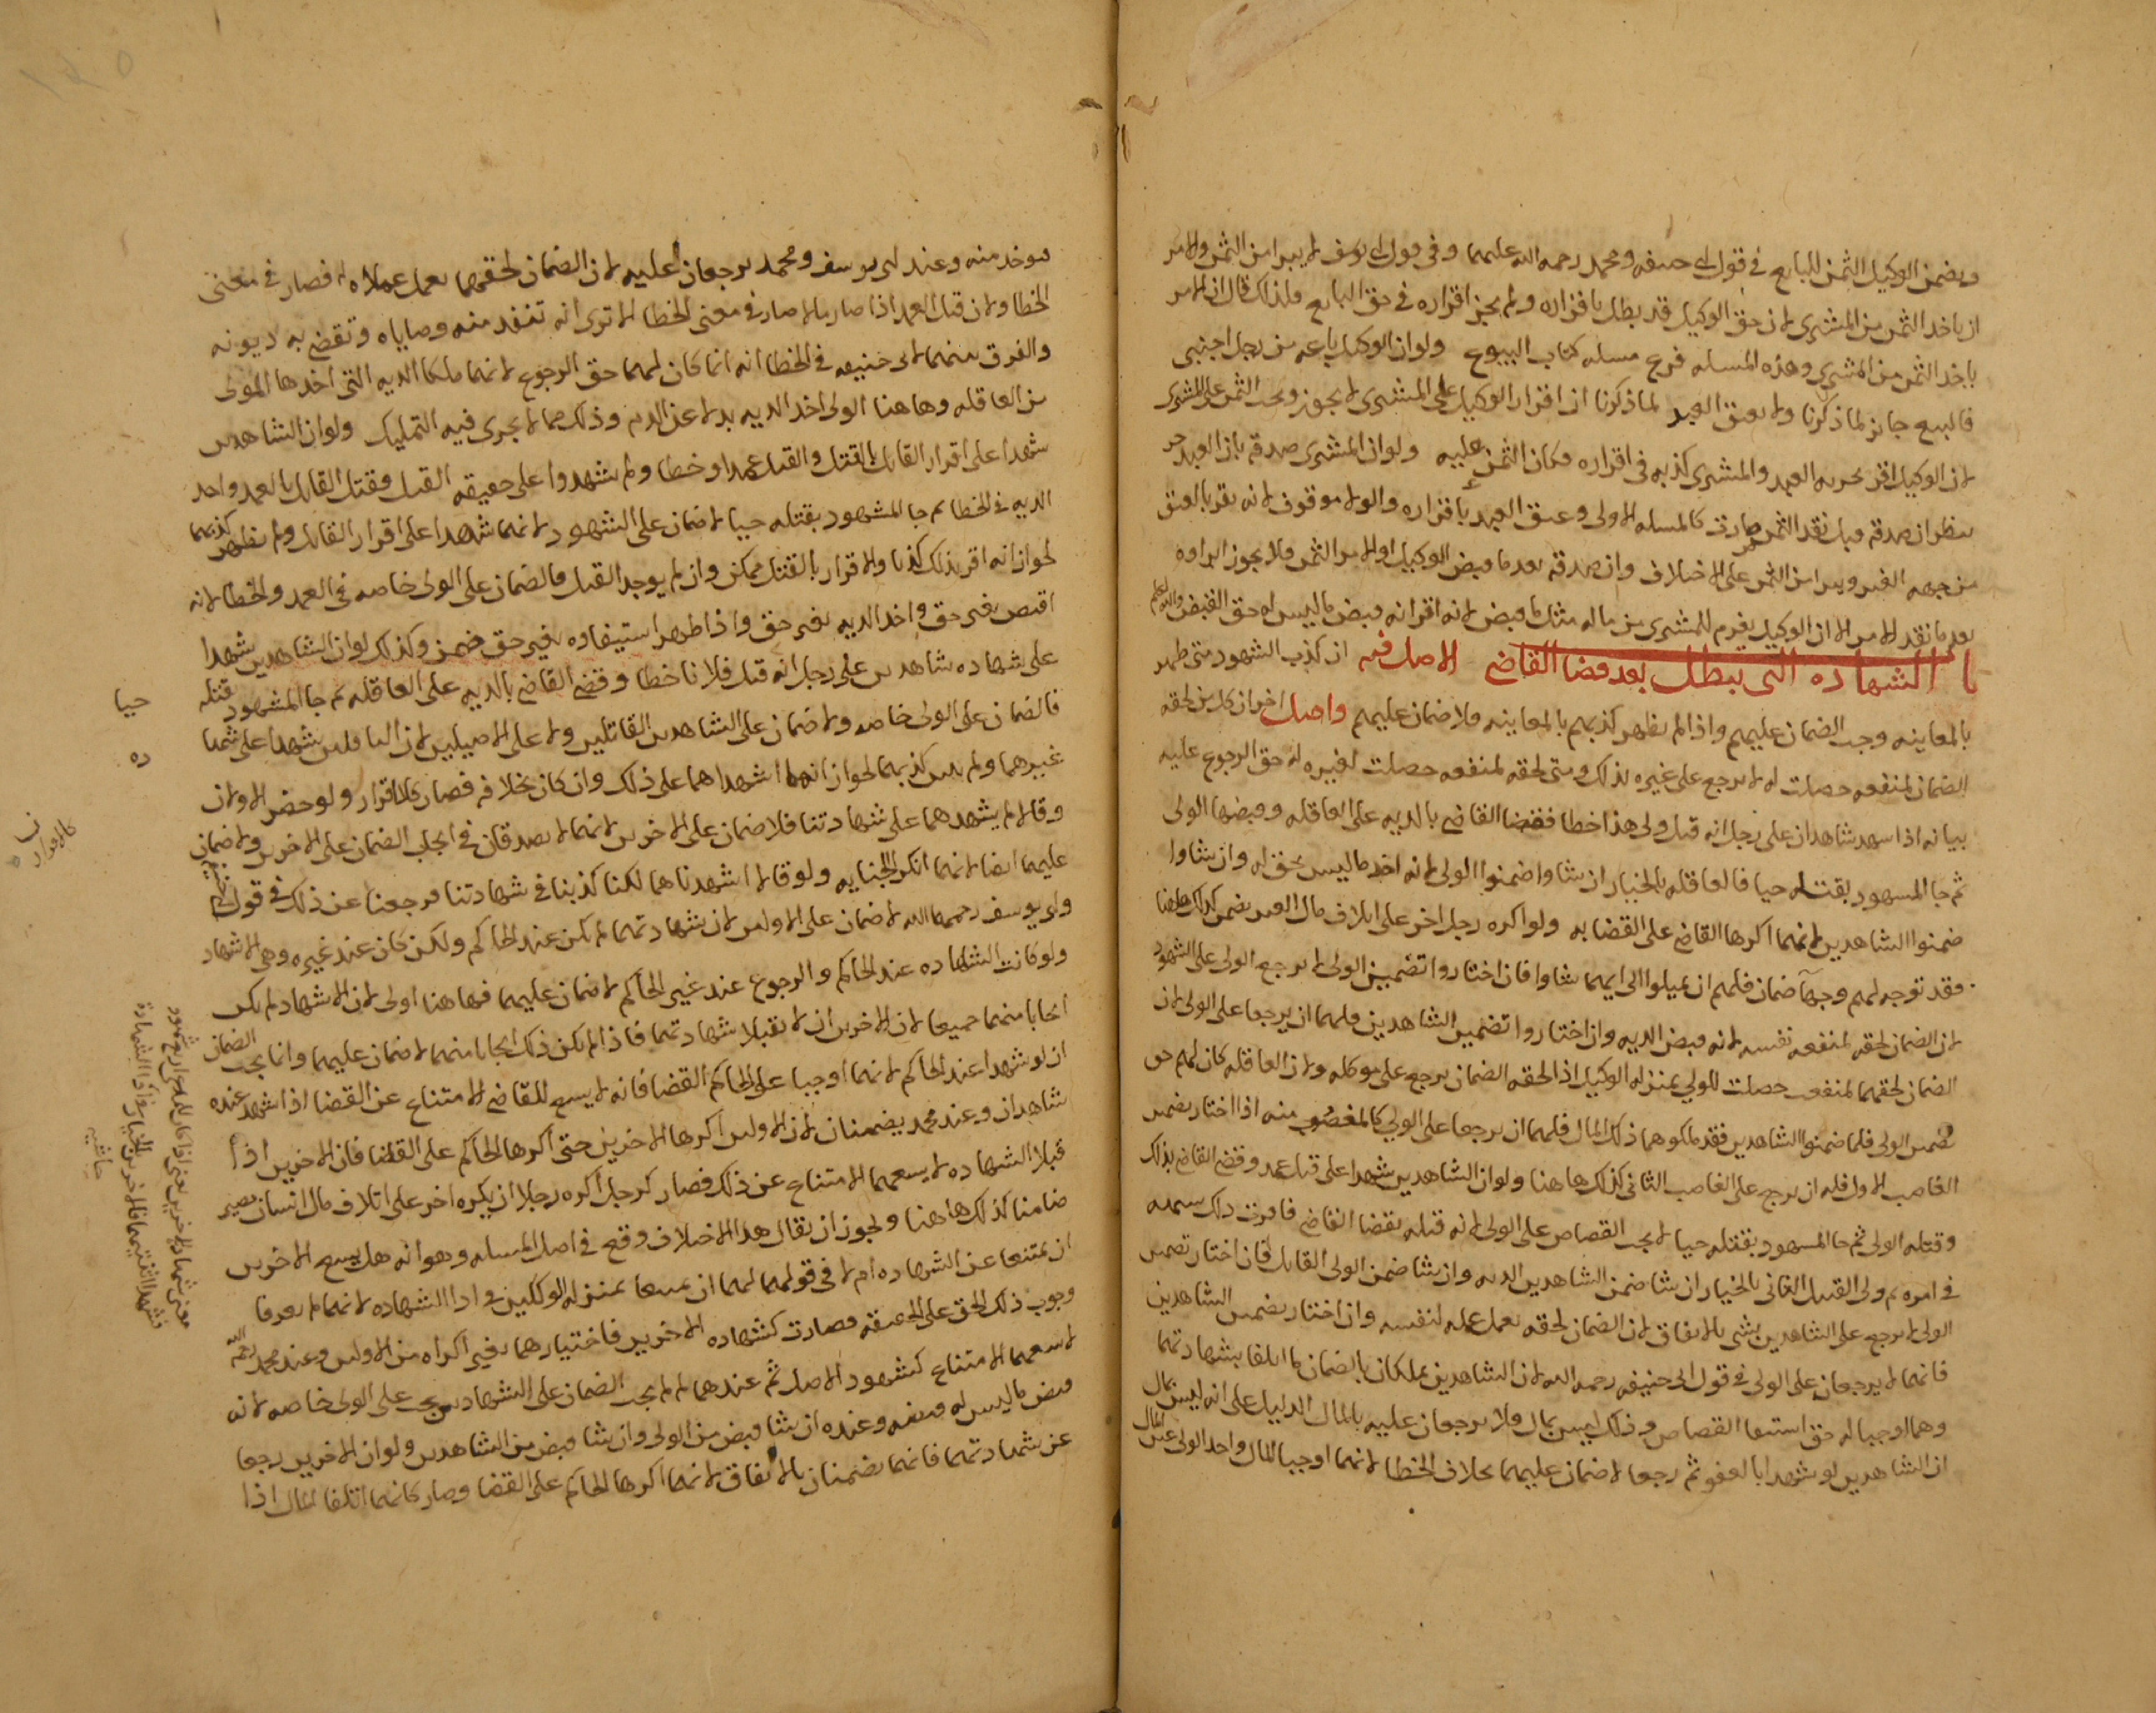 ويضمن الوكيل الثمن للبايع في قول ابي حنيفه ومحمد رحمه الله عليهما وفي قول ابي يوسف لا يبرا من الثمن والامر
ان ياخد الثمن من المشتري لان حق الوكيل قد بطل باقراره ولم يجز اقراره في حق البايع ولذلك قال ان الامر
ياخد الثمن من المشتري وهذه المسله فرع مسله كتاب البيوع ولو ان الوكيل باعه من رجل اجنبي
فالبيع جايز لما ذكرنا ولا يعتق العبد لما ذكرنا ان اقرار الوكيل على المشتري لا يجوز ويجب الثمن على المشتري
لان الوكيل اقر بحريه العبد والمشتري كذبه في اقراره فكان الثمن عليه ولو ان المشتري صدقه بان العبد حر
ينظر ان صدقه قبل نقد الثمن صارت كالمسله الاولى وعتق العبد باقراره والولا موقوف لانه يقر بالعتق
من جهه الغير ويبرا من الثمن على الاختلاف وان صدقه بعد ما قبض الوكيل او الامر الثمن فلا يجوز ابراوه
بعد ما نقد الامر الا ان الوكيل يغرم للمشتري من ماله مثل ما قبض لانه اقر انه قبض ما ليس له حق القبض والله اعلم
باب الشهاده التي تبطل بعد قضا القاضي الاصل فيه ان كذب الشهود متى ظهر
بالمعاينه وجب الضمان عليهم واذا لم يظهر كذبهم بالمعاينه فلا ضمان عليهم واصل اخر ان كل من لحقه
الضمان لمنفعه حصلت له لا يرجع على غيره بذلك ومتى لحقه لمنفعه حصلت لغيره له حق الرجوع عليه
بيانه اذا شهد شاهدان على رجل انه قتل ولي هذا خطا فقضا القاضي بالديه على العاقله وقبضها الولي
ثم جا المشهود بقتله حيا فالعاقله بالخيار ان شاوا ضمنوا الولي لانه اخد ما ليس بحق له وان شاوا
ضمنوا الشاهدين لانهما اكرها القاضي على القضا به ولو اكره رجل اخر على اتلاف مال الغير يضمن كذلك هاهنا
فقد توجه لهم وجها ضمان فلهم ان يميلوا الى ايهما شاوا فان اختاروا تضمين الولي لا يرجع الولي على الشهود
لان الضمان لحقه لمنفعه نفسه لانه قبض الديه وان اختاروا تضمين الشاهدين فلهما ان يرجعا على الولي لان
الضمان لحقهما لمنفعه حصلت للولي بمنزله الوكيل اذا لحقه الضمان يرجع على موكله ولان العاقله كان لهم حق
تضمين الولي فلما ضمنوا الشاهدين فقد ملكوهما ذلك المال فلهما ان يرجعا على الولي كالمغصوب منه اذا اختار تضمين
الغاصب الاول فله ان يرجع على الغاصب الثاني كذلك هاهنا ولو ان الشاهدين شهدا على قتل عمد وقضى القاضي بذلك
وقتله الولي ثم جا المشهود بقتله حيا لا يجب القصاص على الولي لانه قتله بقضا القاضي فاورث ذلك شبهه
في امره ثم ولي القتيل الثاني بالخيار ان شا ضمن الشاهدين الديه وان شا ضمن الولي القاتل فان اختار تضمين
الولي لا يرجع على الشاهدين بشي بالاتفاق لان الضمان لحقه بعمل عمله لنفسه وان اختار تضمين الشاهدين
فانهما لا يرجعان على الولي في قول ابي حنيفه رحمه الله لان الشاهدين يملكان بالضمان ما اتلفا بشهادتهما
وهما اوجبا له حق استيفا القصاص وذلك ليس بمال فلا يرجعان عليه بالمال الدليل على انه ليس بمال
ان الشاهدين لو شهدا بالعفو ثم رجعا لا ضمان عليهما بخلاف الخطا لانهما اوجبا المال واخد الولي عين المال
فيوخد منه وعند ابي يوسف ومحمد يرجعان عليه لان الضمان لحقهما بعمل عملاه له فصار في معنى
الخطا ولان قتل العمد اذا صار مالا صار في معنى الخطا الا ترى انه تنفد منه وصاياه وتقضى به ديونه
والفرق بينهما لابي حنيفه في الخطا انه انما كان لهما حق الرجوع لانهما ملكا الديه التي اخدها المولى
من العاقله وهاهنا الولي اخد الديه بدلا عن الدم وذلك مما لا يجرى فيه التمليك ولو ان الشاهدين
شهدا على اقرار القاتل بالقتل والقتل عمدا او خطا ولم يشهدوا على حقيقه القتل فقتل القاتل بالعمد واخد
الديه في الخطا ثم جا المشهود بقتله حيا لا ضمان على الشهود لانهما شهدا على اقرار القاتل ولم يظهر كذبهما
لجواز انه اقر بذلك كذبا والاقرار بالقتل ممكن وان لم يوجد القتل فالضمان على الولي خاصه في العمد والخطا لانه
اقتص بغير حق واخد الديه بغير حق واذا ظهر استيفاوه بغير حق ضمن وكذلك لو ان الشاهدين شهدا
على شهاده شاهدين على رجل انه قتل فلانا خطا وقضى القاضي بالديه على العاقله ثم جا المشهود قتله حيا
فالضمان على الولي خاصه ولا ضمان على الشاهدين القاتلين ولا على الاصيلين لان الناقلين شهدا على شهاده
غيرهما ولم يتبين كذبهما لجواز انهما اشهداهما على ذلك وان كان بخلافه فصار كالاقرار ولو حضر الاولان
وقالا لم يشهدهما على شهادتنا فلا ضمان على الاخرين لانهما لا يصدقان في ايجاب الضمان على الاخرين ولا ضمان
عليهما ايضا لانهما انكرا الجنايه ولو قالا اشهدناهما لكنا كذبنا في شهادتنا ورجعنا عن ذلك في قول ابي حنيفه
وابي يوسف رحمهما الله لا ضمان على الاولين لان شهادتهما لم تكن عند الحاكم ولكن كان عند غيره وهي الاشهاد
ولو كانت الشهاده عند الحاكم والرجوع عند غير الحاكم لا ضمان عليهما فهاهنا اولى لان الاشهاد لم يكن
ايجابا منهما جميعا لان الاخرين ان لا يقبلا شهادتهما فاذا لم يكن ذلك ايجابا منهما لا ضمان عليهما وانما يجب الضمان
ان لو شهدا عند الحاكم لانهما اوجبا على الحاكم القضا فانه لا يسع للقاضي الامتناع عن القضا اذا شهد عنده
شاهدان وعند محمد يضمنان لان الاولين اكرها الاخرين حتى اكرها الحاكم على القضا فان الاخرين اذا
قبلا الشهاده لا يسعهما الامتناع عن ذلك فصار كرجل اكره رجلا ان يكره اخر على اتلاف مال انسان يصير
ضامنا كذلك هاهنا ويجوز ان يقال هدا الاختلاف وقع في اصل المسله وهو انه هل يسع الاخرين
ان يمتنعا عن الشهاده ام لا في قولهما لهما ان يمتنعا بمنزله الوكيلين في ادا الشهاده لانهما لم يعرفا
وجوب ذلك الحق على الحقيقه فصارت كشهاده الاخرين فاختيارهما بغير اكراه من الاولين وعند محمد رحمه الله
لا يسعهما الامتناع كشهود الاصل ثم عندهما لما لم يجب الضمان على الشهادين يجب على الولي خاصه لانه
قبض ما ليس له قبضه وعنده ان شا قبض من الولي وان شا قبض من الشاهدين ولو ان الاخرين رجعا
عن شهادتهما فانهما يضمنان بالاتفاق لانهما اكرها الحاكم على القضا وصار كانهما اتلفا المال اذا
حاشيه